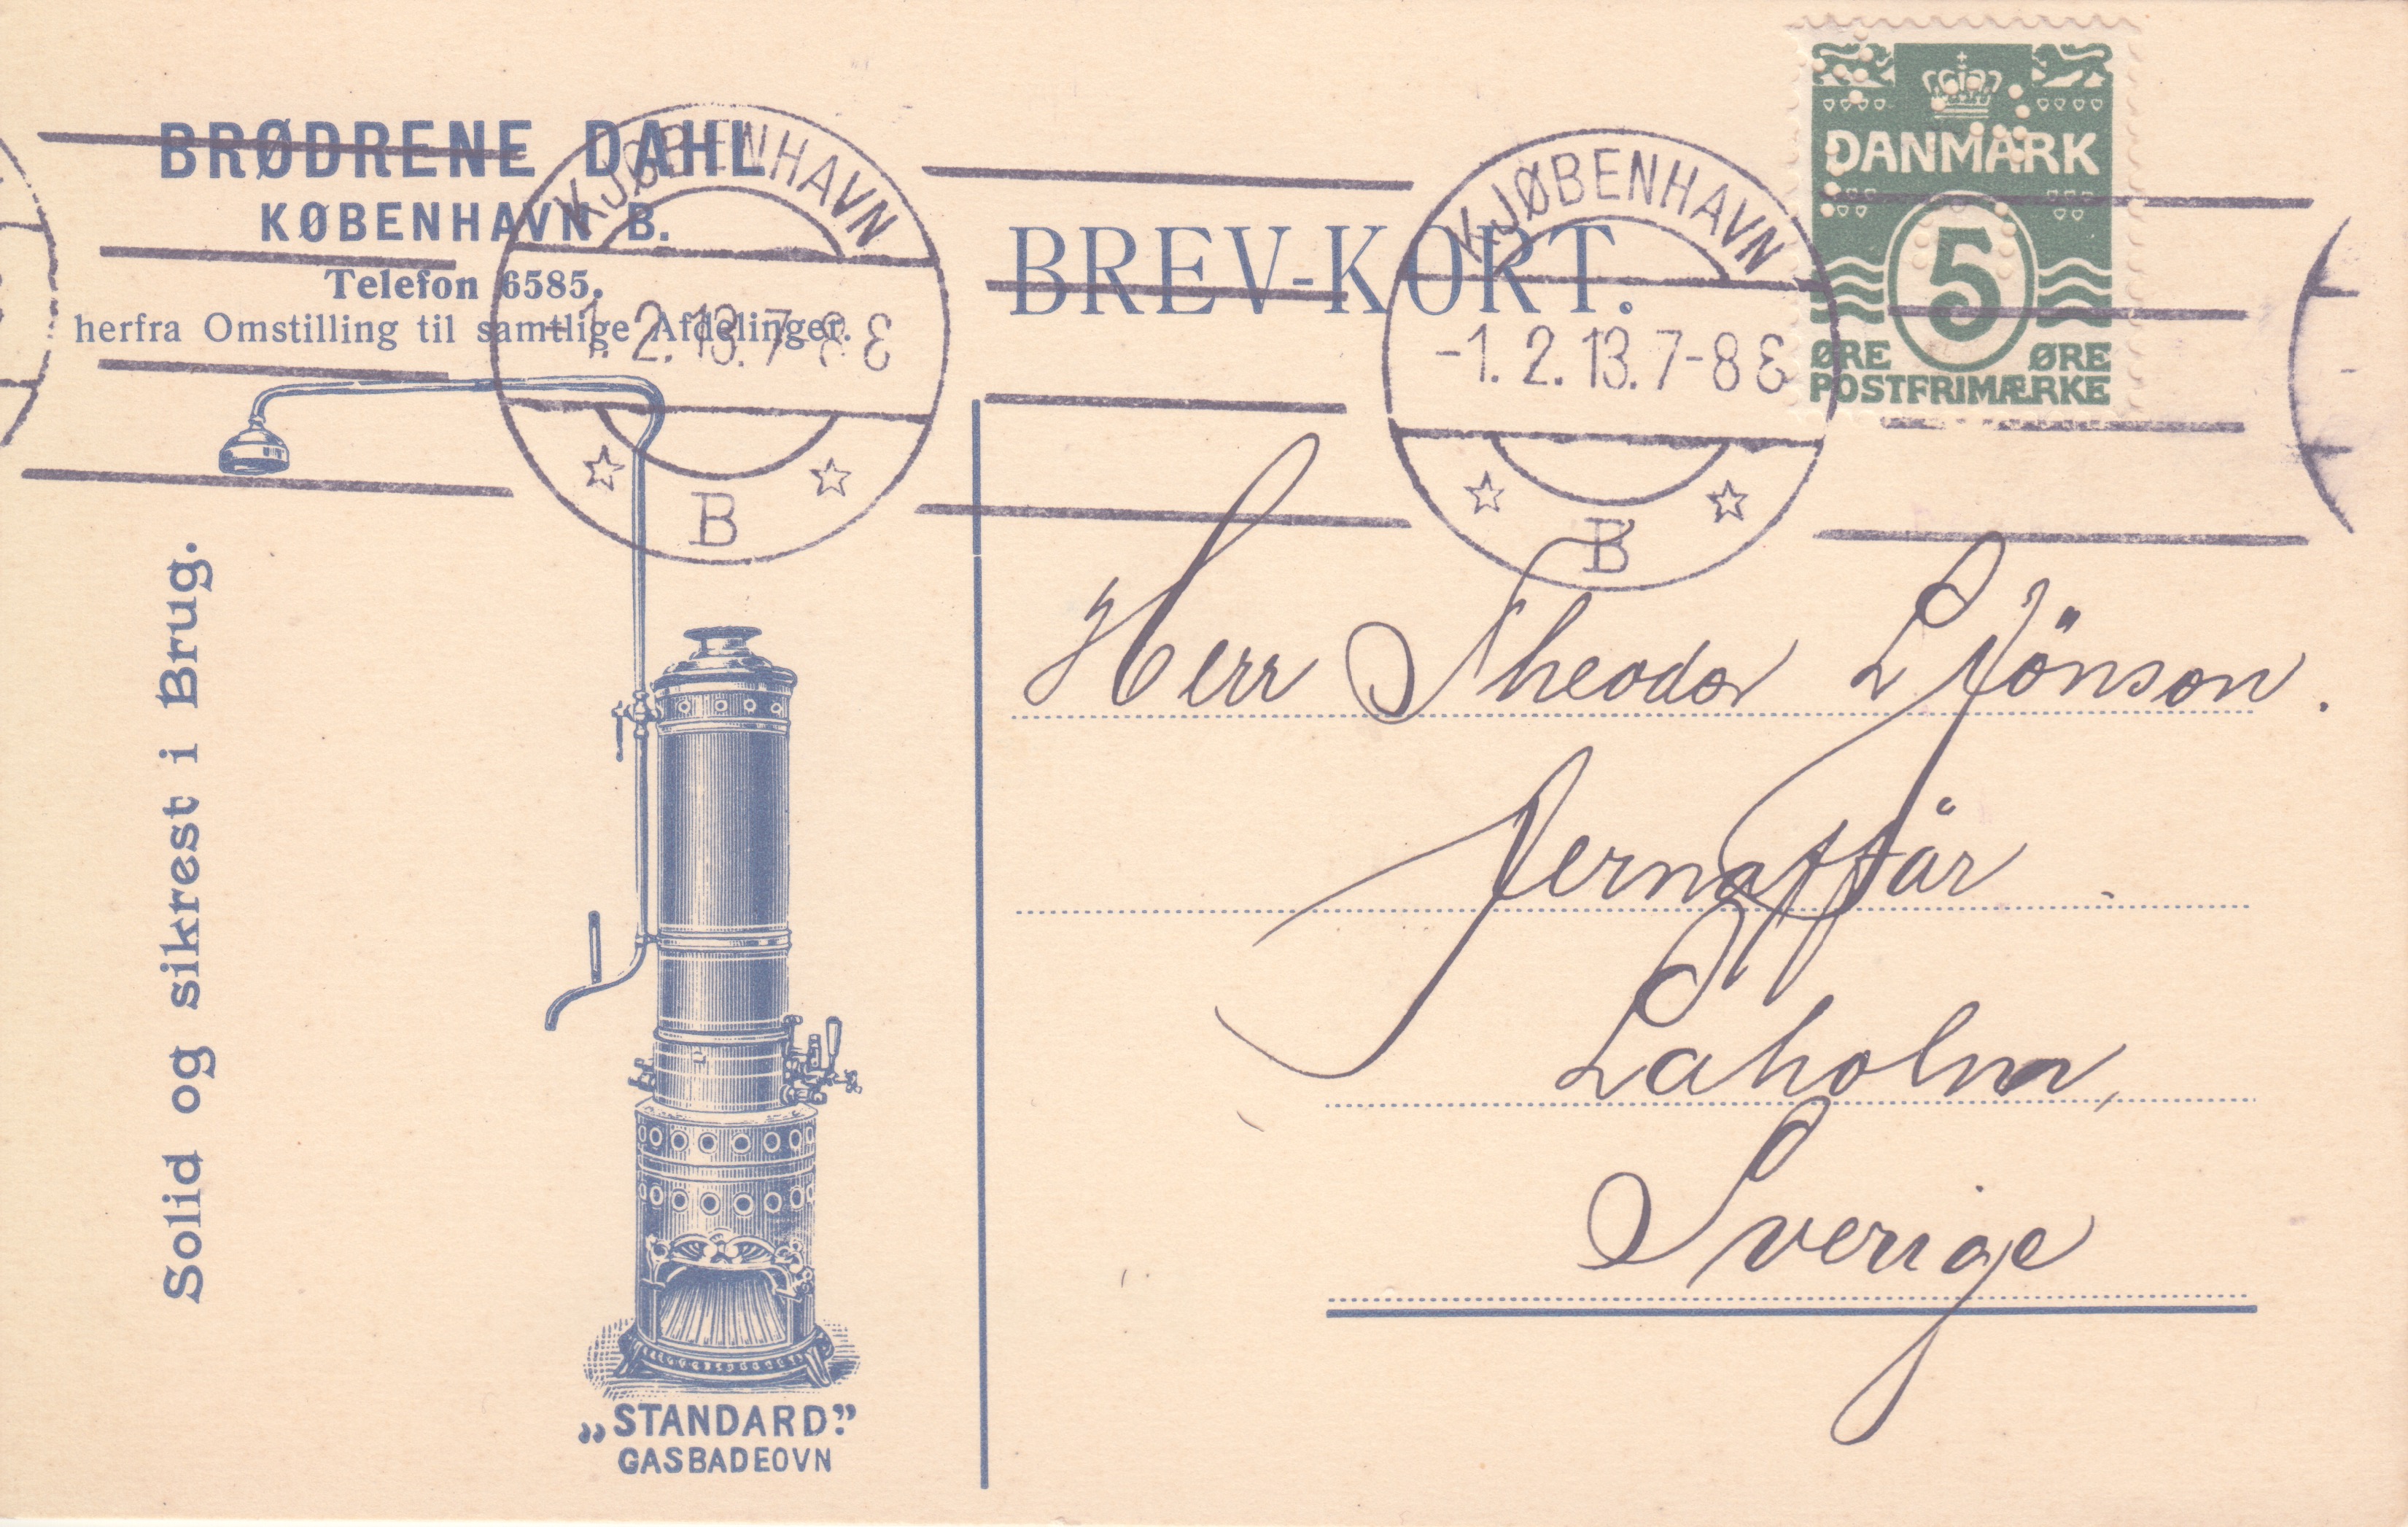 BRØDRENE DAHL
KØBENHAVN B.
Telefon 6585.
herfra Omstilling til samtlige Afdelinger.
KJØBENHAVN
-1. 2. 13. 7-8 E
B
BREV-KORT.
KJØBENHAVN
-1. 2. 13. 7-8 E
B
DANMARK
5
ØRE ØRE
POSTFRIMÆRKE
Solid og sikrest i Brug.
Herr Theodor L Jönson.
Jernaffär
Laholm,
Sverige
„STANDARD”.
GASBADEOVN